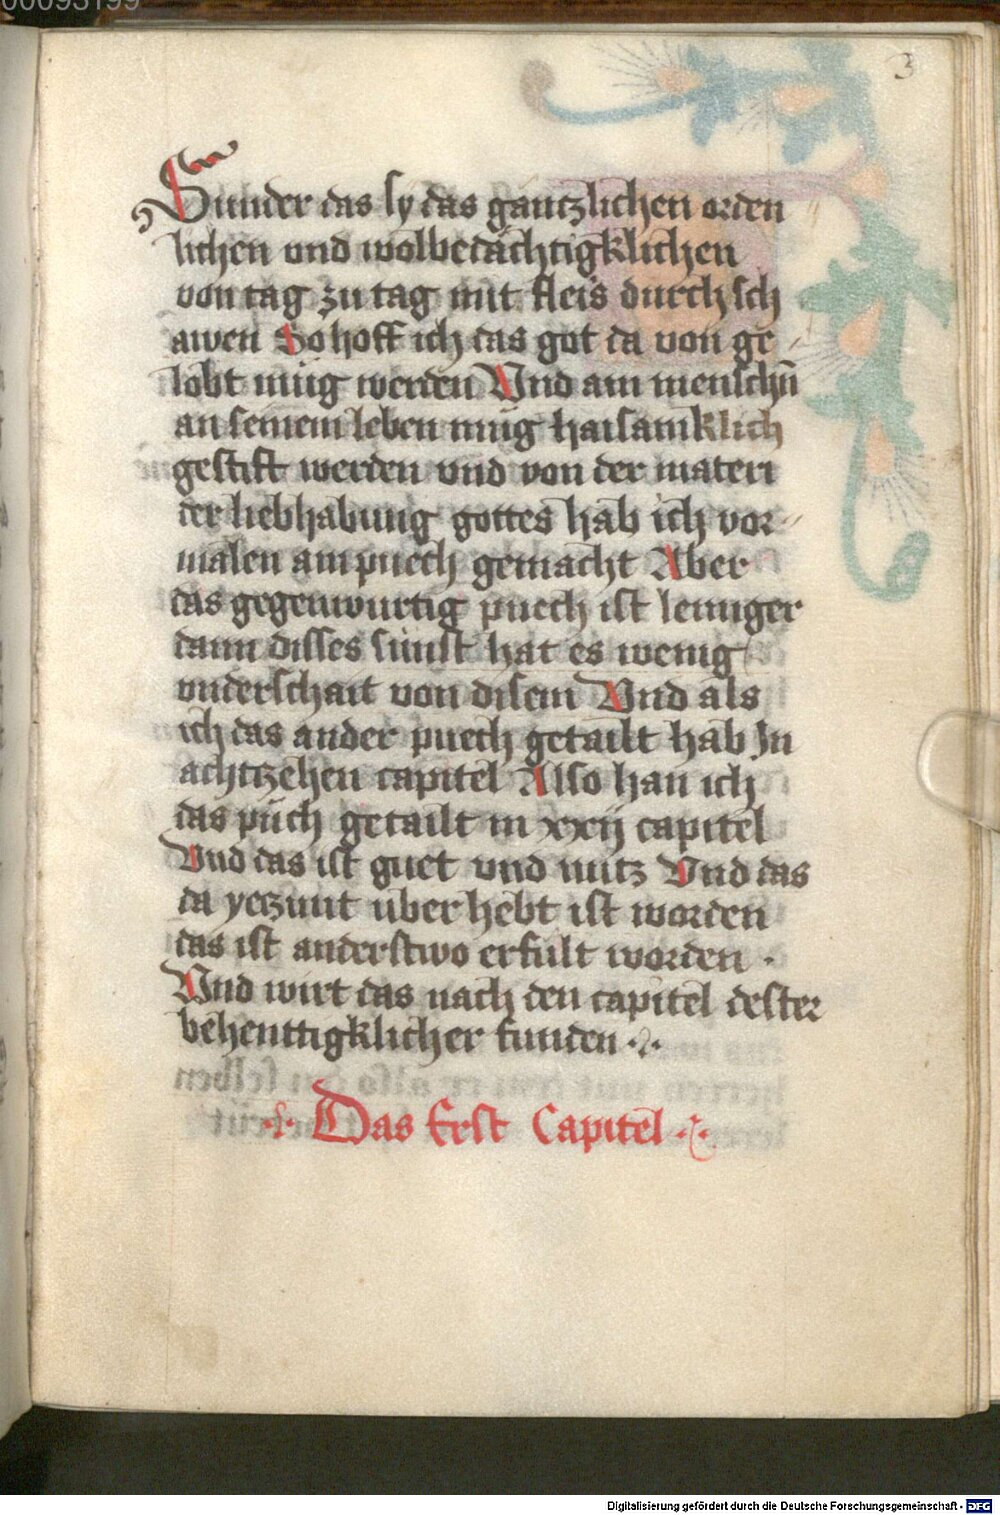 00093199
3
Sunder das sy das gantzlichen orden
lichen vnd wolbedachtigklichen
von tag zu tag mit fleis durch sch
awen So hoff ich das got da von ge
lobt müg werden Vnd am menschn̄
an seinem leben müg hailsamklich
gestift werden vnd von der materi
der liebhabung gottes hab ich vor
malen ain puech gemacht Aber
das gegenwurtig puech ist leniger
dann disses sunst hat es wenig
vnderschait von disem Vnd als
ich das ander puech getailt hab In
achtzehen capitel Also han ich
das püch getailt in xxij capitel
Vnd das ist guet vnd nutz Vnd das
da yetzunt uber hebt ist worden
das ist anderstwo erfult worden .
Vnd wirt das nach den capitel dester
behenttigklicher funden
Das Erst Capitel
Digitalisierung gefördert durch die Deutsche Forschungsgemeinschaft - DFG